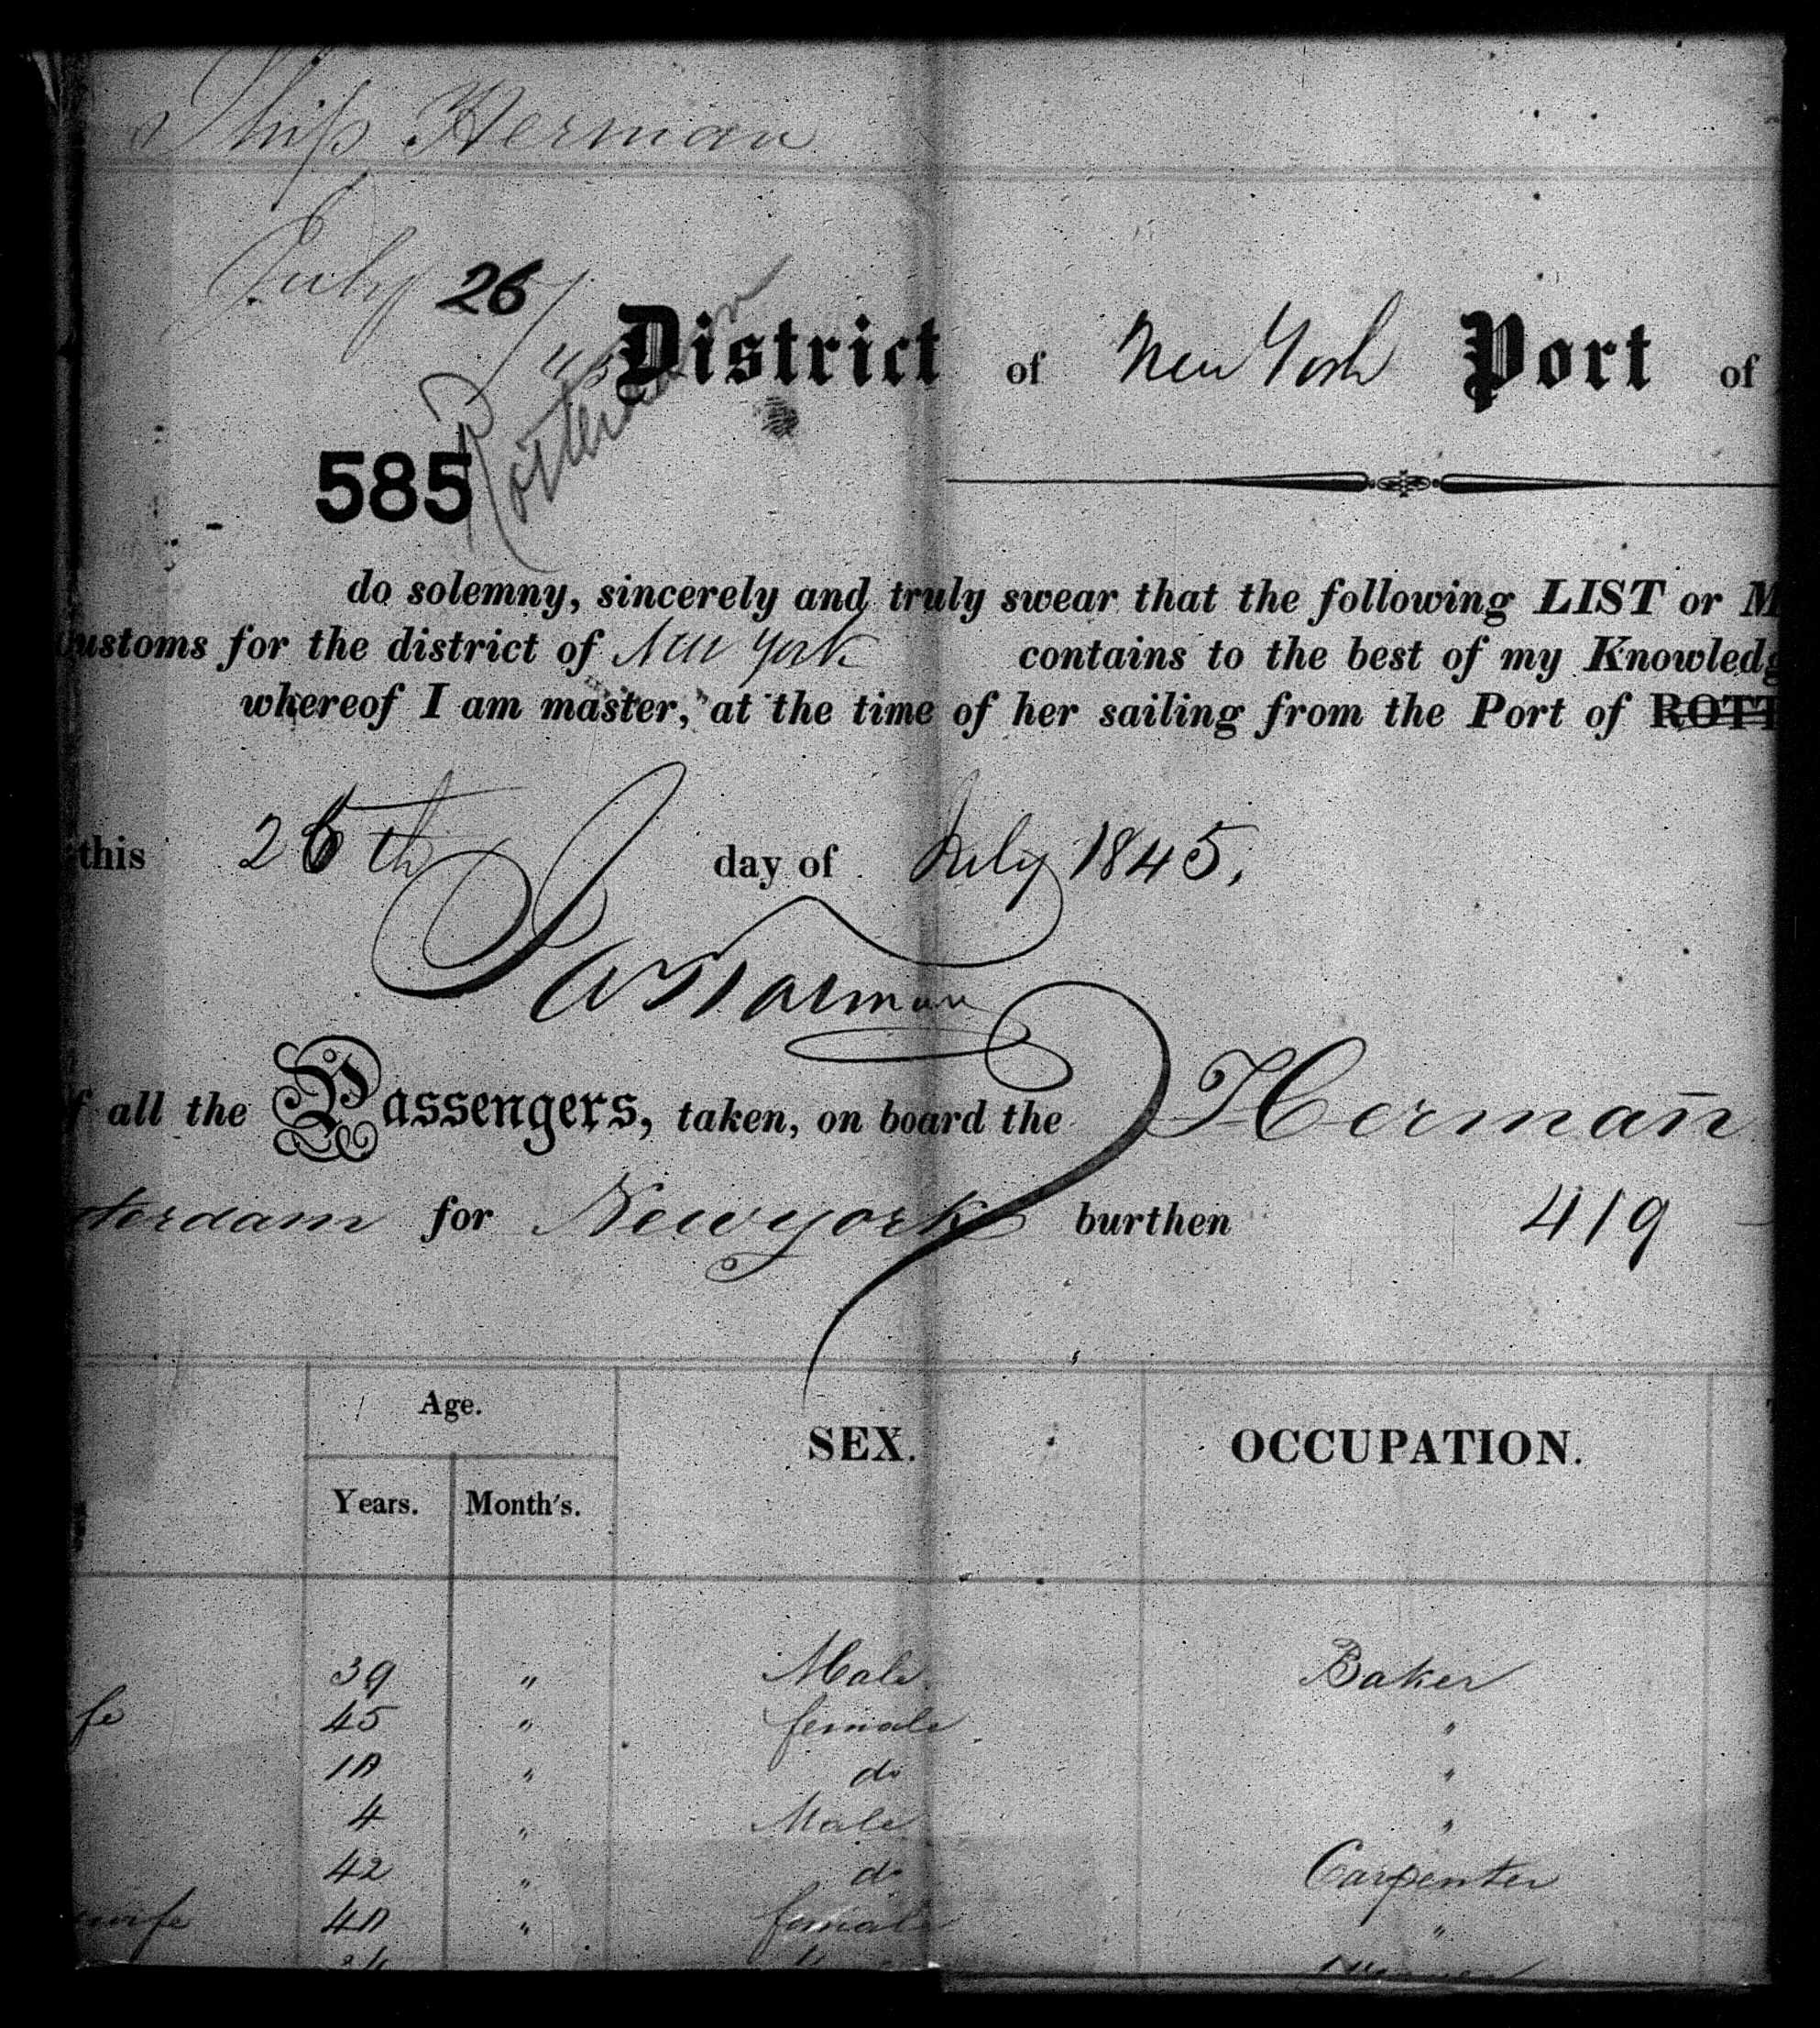 Ship Herman
July 26/45
Rotterdam
District of New York Port of
585
do solemny, sincerely and truly swear that the following LIST or M
ustoms for the district of New York contains to the best of my Knowledg
whereof I am master, at the time of her sailing from the Port of ROTT
this 26th day of July 1845,
f all the Passengers, taken, on board the Hermann
terdam for New york burthen 419
Age. SEX. OCCUPATION.
Years. Month's.
39 " Male Baker
fe 45 " female "
10 " do "
4 " Male "
42 " do Carpenter
wife 40 " female "